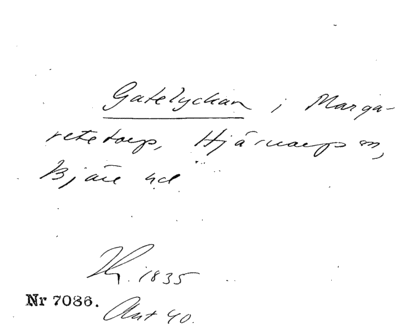 Gatelyckan i Marga-
retetorp, Hjärnarps sn,
Bjäre hd
1835
Nr 7086. Ant 40.